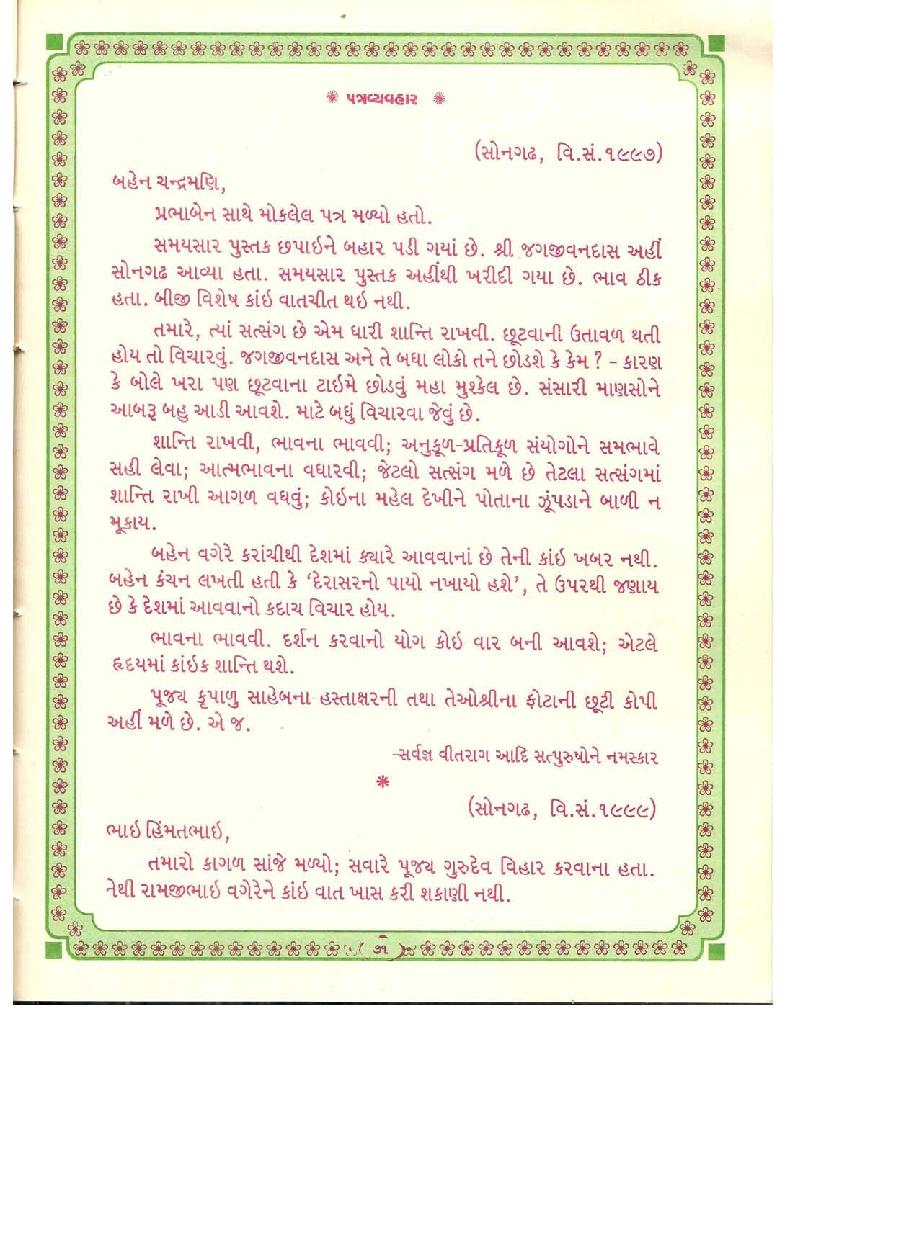 ❋ પત્રવ્યવહાર ❋
(સોનગઢ, વિ.સં.૧૯૯૭)
બહેન ચન્દ્રમણિ,
પ્રભાબેન સાથે મોકલેલ પત્ર મળ્યો હતો.
સમયસાર પુસ્તક છપાઇને બહાર પડી ગયાં છે. શ્રી જગજીવનદાસ અહીં
સોનગઢ આવ્યા હતા. સમયસાર પુસ્તક અહીંથી ખરીદી ગયા છે. ભાવ ઠીક
હતા. બીજી વિશેષ કાંઇ વાતચીત થઇ નથી.
તમારે, ત્યાં સત્સંગ છે એમ ધારી શાન્તિ રાખવી. છૂટવાની ઉતાવળ થતી
હોય તો વિચારવું. જગજીવનદાસ અને તે બધા લોકો તને છોડશે કે કેમ ? – કારણ
કે બોલે ખરા પણ છૂટવાના ટાઇમે છોડવું મહા મુશ્કેલ છે. સંસારી માણસોને
આબરૂ બહુ આડી આવશે. માટે બધું વિચારવા જેવું છે.
શાન્તિ રાખવી, ભાવના ભાવવી; અનુકૂળ-પ્રતિકૂળ સંયોગોને સમભાવે
સહી લેવા; આત્મભાવના વધારવી; જેટલો સત્સંગ મળે છે તેટલા સત્સંગમાં
શાન્તિ રાખી આગળ વધવું; કોઇના મહેલ દેખીને પોતાના ઝૂંપડાને બાળી ન
મૂકાય.
બહેન વગેરે કરાંચીથી દેશમાં ક્યારે આવવાનાં છે તેની કાંઇ ખબર નથી.
બહેન કંચન લખતી હતી કે ‘દેરાસરનો પાયો નખાયો હશે’, તે ઉપરથી જણાય
છે કે દેશમાં આવવાનો કદાચ વિચાર હોય.
ભાવના ભાવવી. દર્શન કરવાનો યોગ કોઇ વાર બની આવશે; એટલે
હૃદયમાં કાંઇક શાન્તિ થશે.
પૂજ્ય કૃપાળુ સાહેબના હસ્તાક્ષરની તથા તેઓશ્રીના ફોટાની છૂટી કોપી
અહીં મળે છે. એ જ.
-સર્વજ્ઞ વીતરાગ આદિ સત્પુરુષોને નમસ્કાર
❋
(સોનગઢ, વિ.સં.૧૯૯૯)
ભાઇ હિંમતભાઇ,
તમારો કાગળ સાંજે મળ્યો; સવારે પૂજ્ય ગુરુદેવ વિહાર કરવાના હતા.
તેથી રામજીભાઇ વગેરેને કાંઇ વાત ખાસ કરી શકાણી નથી.